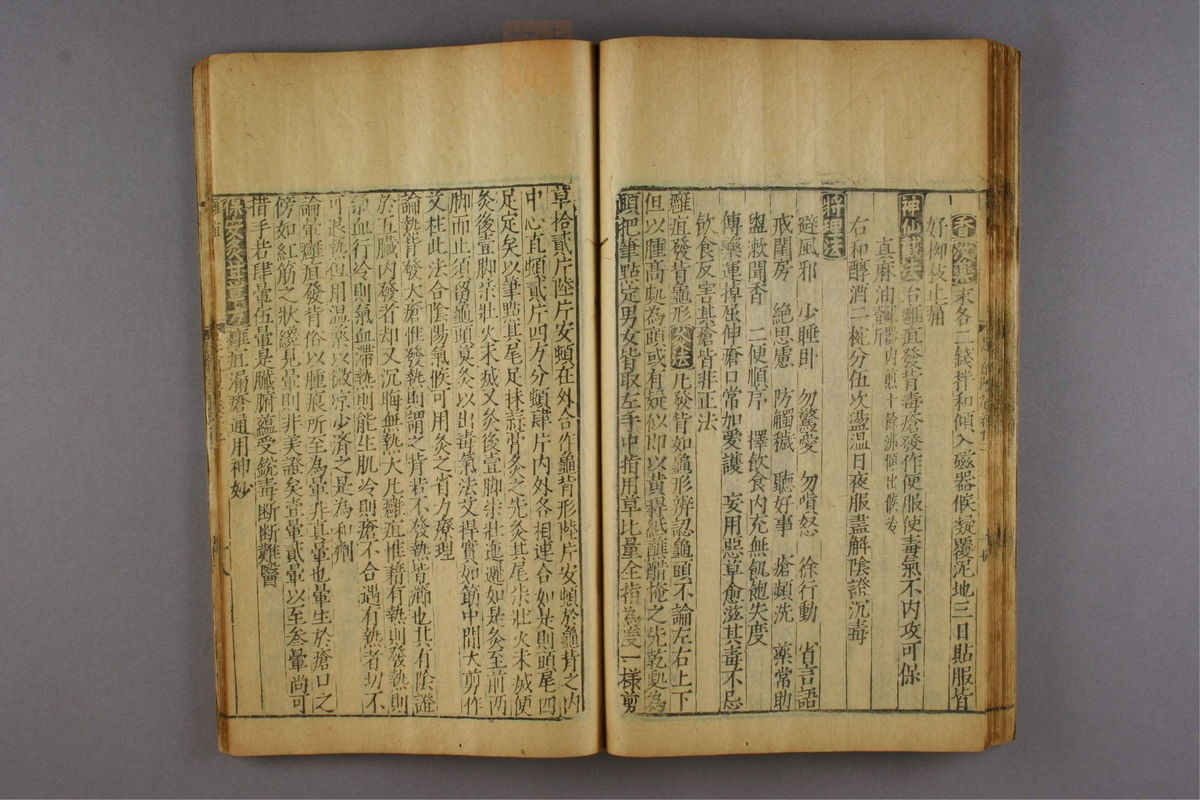 末各二錢拌和傾入磁器候凝覆泥地三日貼服皆
好柳枝止痛
神仙截法 治癰疽發背毒瘡發作便服使毒氣不内攻可保
真麻油
右和醇酒二椀分伍次盪溫日夜服盡解陰證沉毒
將理法
避風邪 少睡卧 勿驚憂 勿嗔怒 徐行動 省言語
戒閨房 絶思慮 防觸穢 聽好事 瘡頻洗 藥常助
盥漱聞香 二便順序 擇飲食内充無飢飽失度
傳藥運掉屈伸瘡口常加愛護 妄用惡草愈滋其毒不忌
飲食反害其瘡皆非正法
癰疽發背龜形灸法 凡發背如龜形辨認龜頭不論左右上下
但以腫高處為頭或有疑似即以黃稈紙蘸醋掩之先乾處為
頭把筆點定男女皆取左手中指用草比量全指為度一樣剪
草拾貳片陸片安頓在外合作龜背形陸片安頓於龜背之内
中心直頓貳片四方分頓肆片内外各相連合如是則頭尾四
足定矣以筆點宜尾足抹蒜膏灸之先灸其尾柒壯火未滅便
灸後壹脚柒壯火未滅又灸後壹脚柒壯迤邐如是灸至前兩
脚而止須留龜頭莫灸以出毒氣法文捍實如筯中間大剪作
文柱此法合陰陽氣候可用灸之省力療理
論熱背發大瘡惟發熱則謂之背若不發熱皆瘹也其有陰證
於五臟内發者却又沉晦無熱大凡癰疽惟藉有熱則發熱則
氣血行冷則氣血滯熱則能生肌冷則瘡不合遇有熱者切不
可退熱但用溫藥以微凉少濟之是為和劑
論暈癰疽發背俗以腫痕所至為暈非真暈也暈生於瘡口之
傍如紅筋之狀纔見暈則非美證矣壹暈貳暈以至叁暈尚可
措手若肆暈伍暈是臟腑蘊受銳毒断断難醫
癰疽漏瘡通用神妙